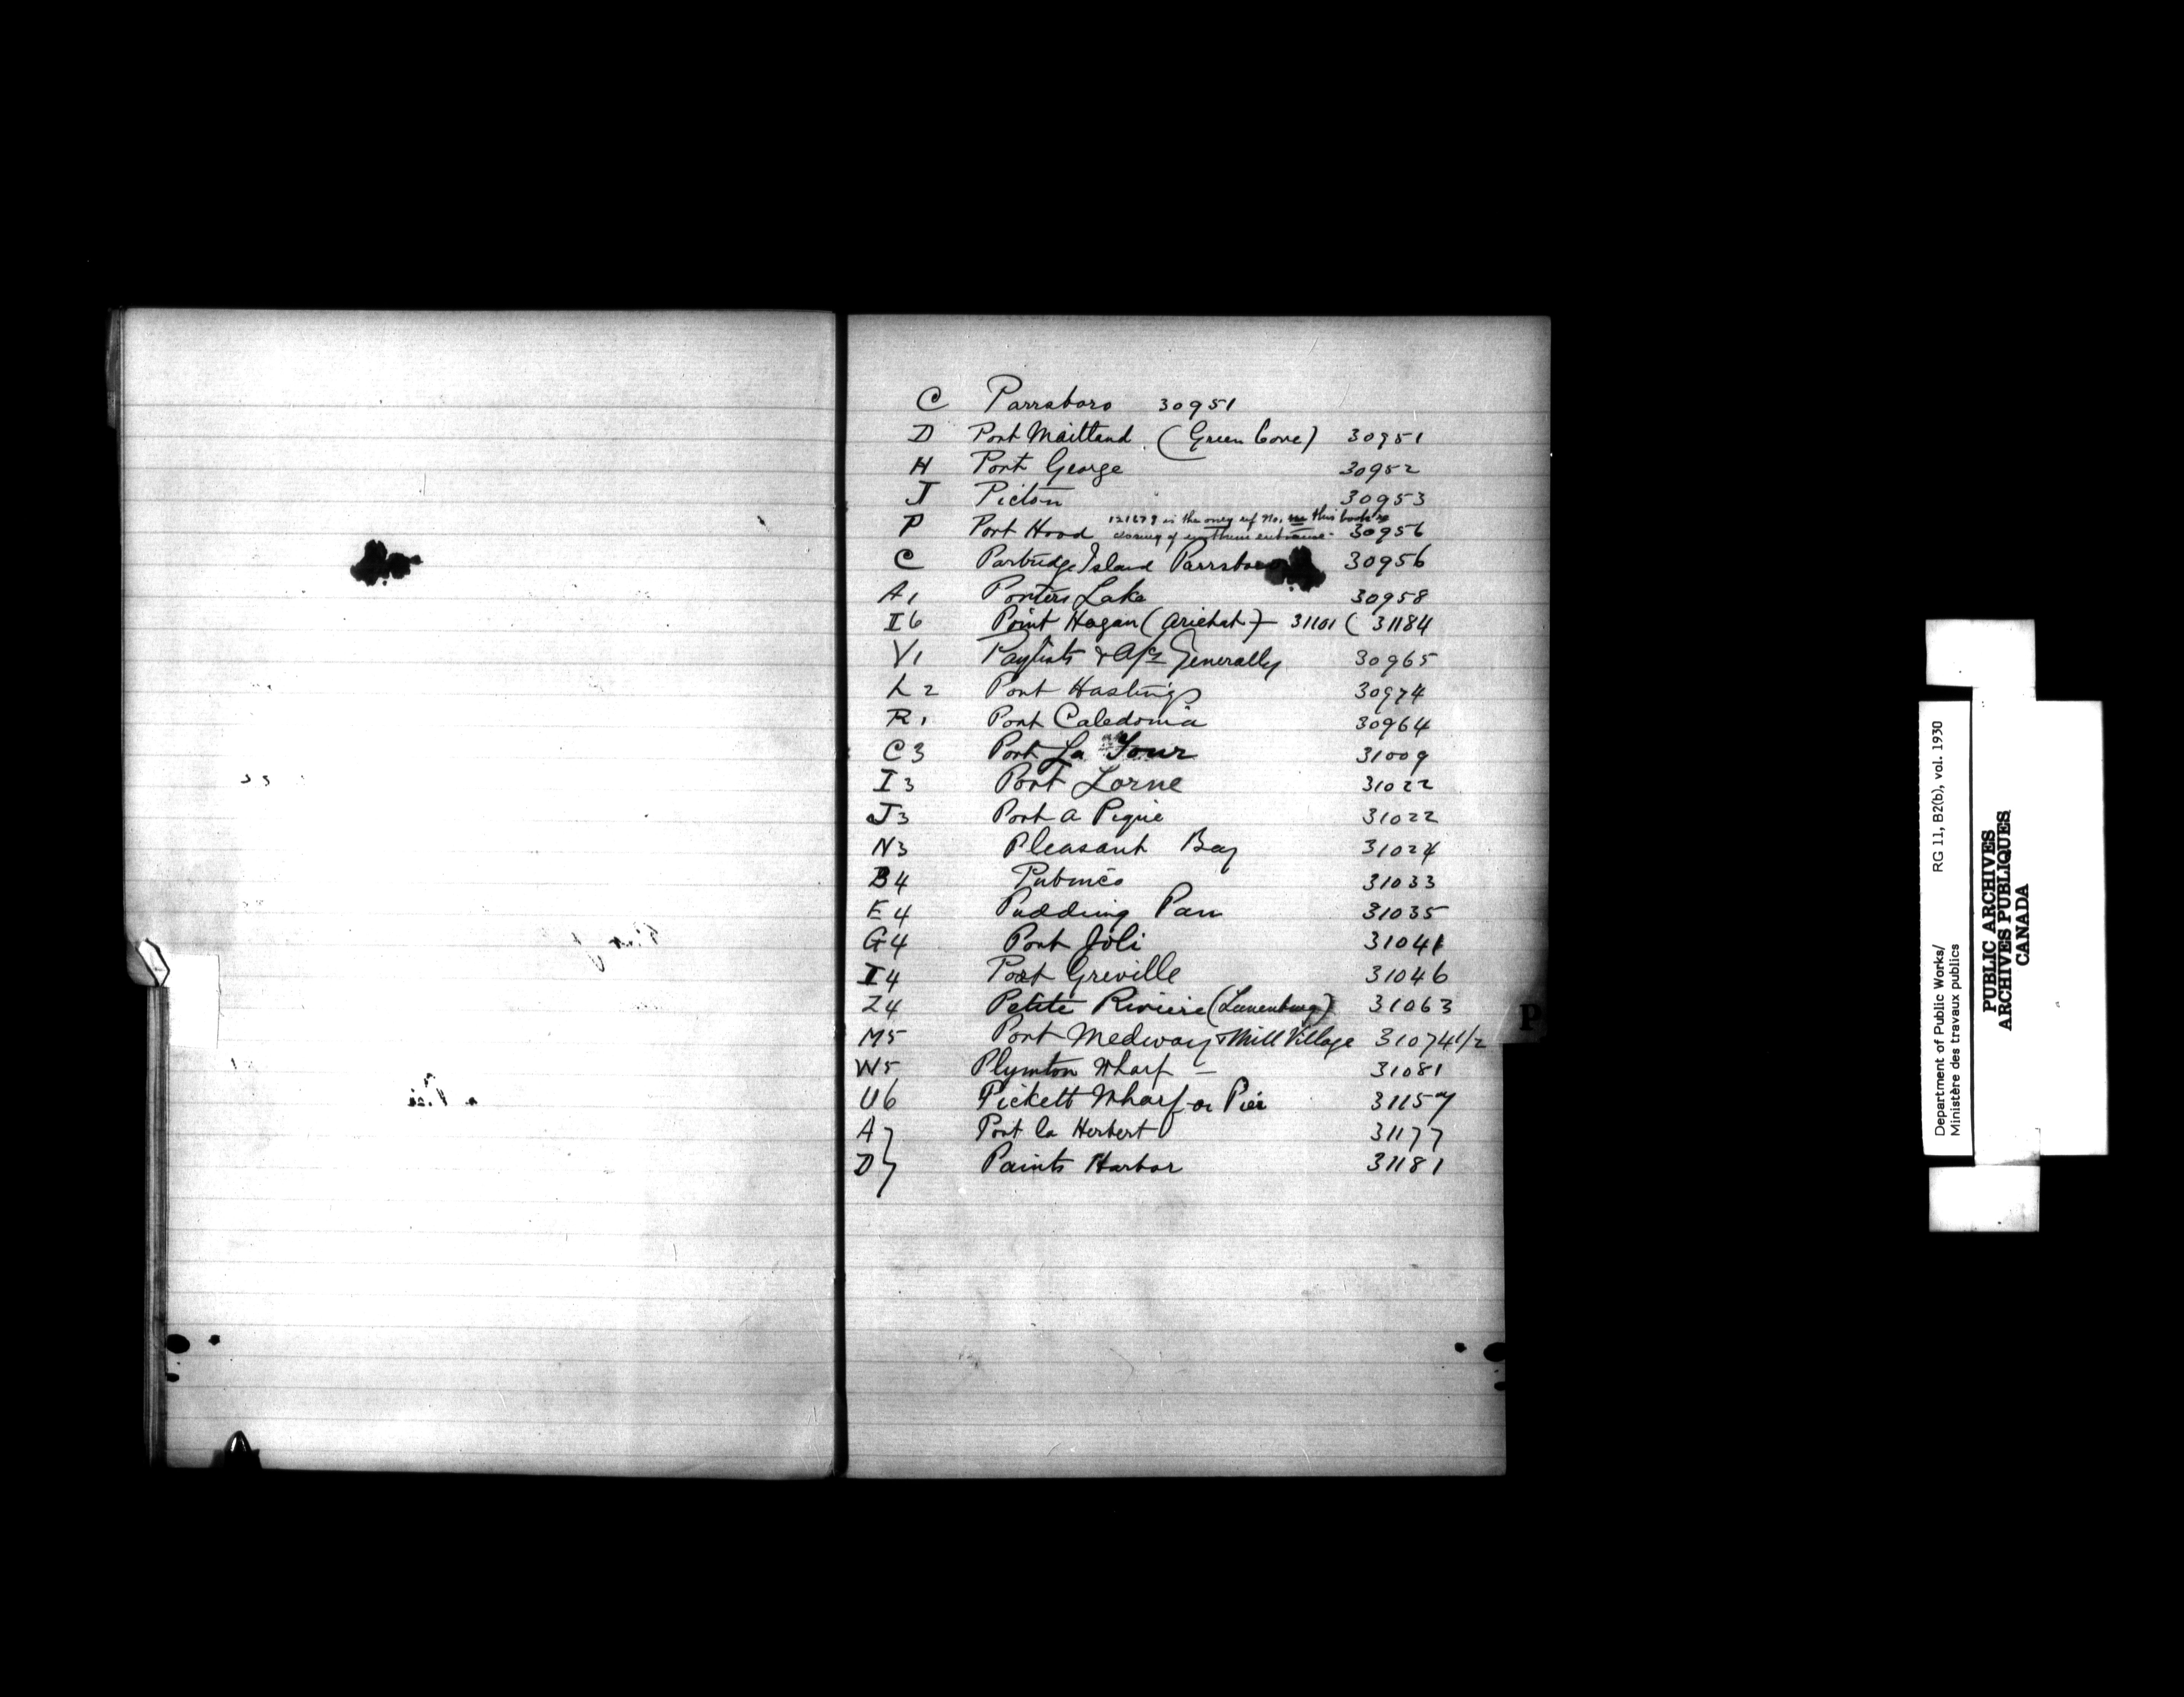 C Parrsboro 30951
D Port Maitland (Green Cove) 30951
H Port George 30952
J Picton 30953
121279 is the only ref No. in this book re
P Port Hood closing of southern entrance - 30956
C Partridge Island Parrsboro 30956
A1 Porters Lake 30958
I6 Point Hagan (Arichat) - 31101 ( 31184
V1 Paylists & A/cs Generally 30965
L2 Port Hastings 30974
R1 Port Caledonia 30964
C3 Port La Tour 31009
I3 Port Lorne 31022
J3 Port a Pique 31022
N3 Pleasant Bay 31024
B4 Pubnico 31033
E4 Pudding Pan 31035
G4 Port Joli 31041
I4 Port Greville 31046
Z4 Petite Riviere (Lunenburg) 31063
M5 Port Medway & Mill Village 31074 1/2
W5 Plymton Wharf - 31081
U6 Pickett Wharf or Pier 31157
A7 Port la Herbert 31177
D7 Paints Harbor 31181
P
Department of Public Works/ RG 11, B2(b), vol. 1930
Ministère des travaux publics
PUBLIC ARCHIVES
ARCHIVES PUBLIQUES
CANADA